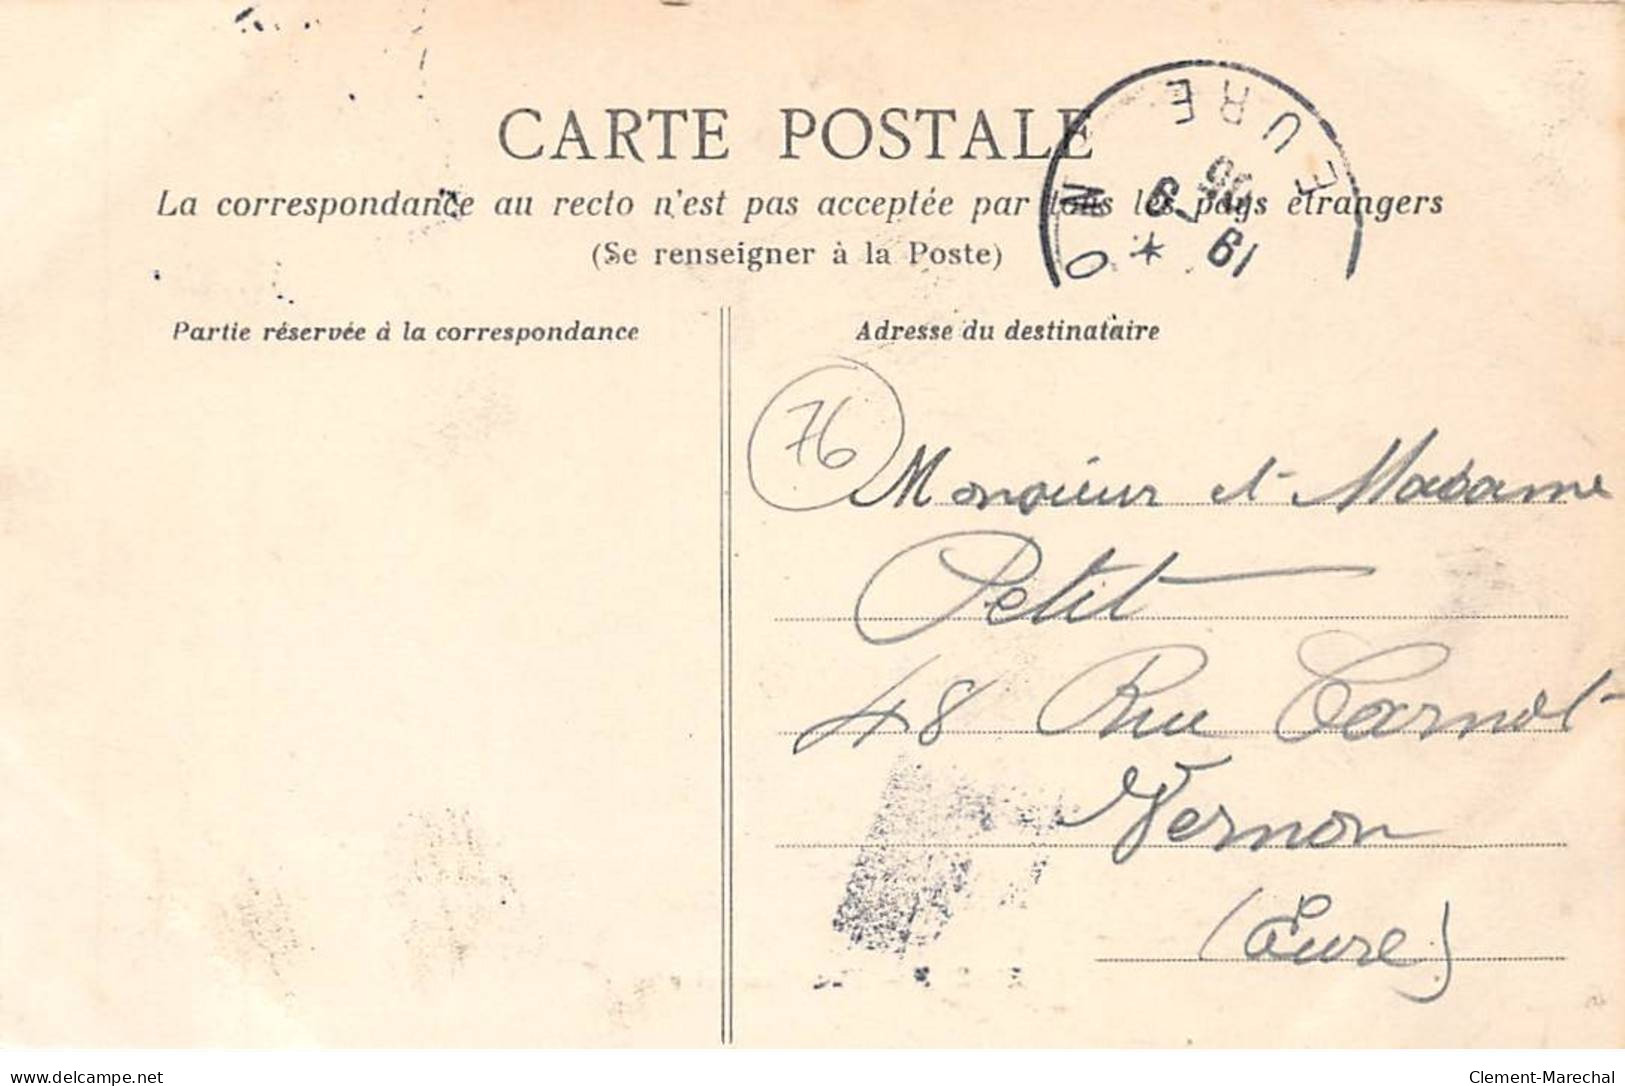 CARTE POSTALE
La correspondance au recto n'est pas acceptée par tous les pays étrangers
(Se renseigner à la Poste)
EURE
Partie réservée à la correspondance
Adresse du destinataire
76
Monsieur et Madame
Petit
48 Rue Carnot
Vernon
(Eure)
delcampe.net
Clement-Marechal